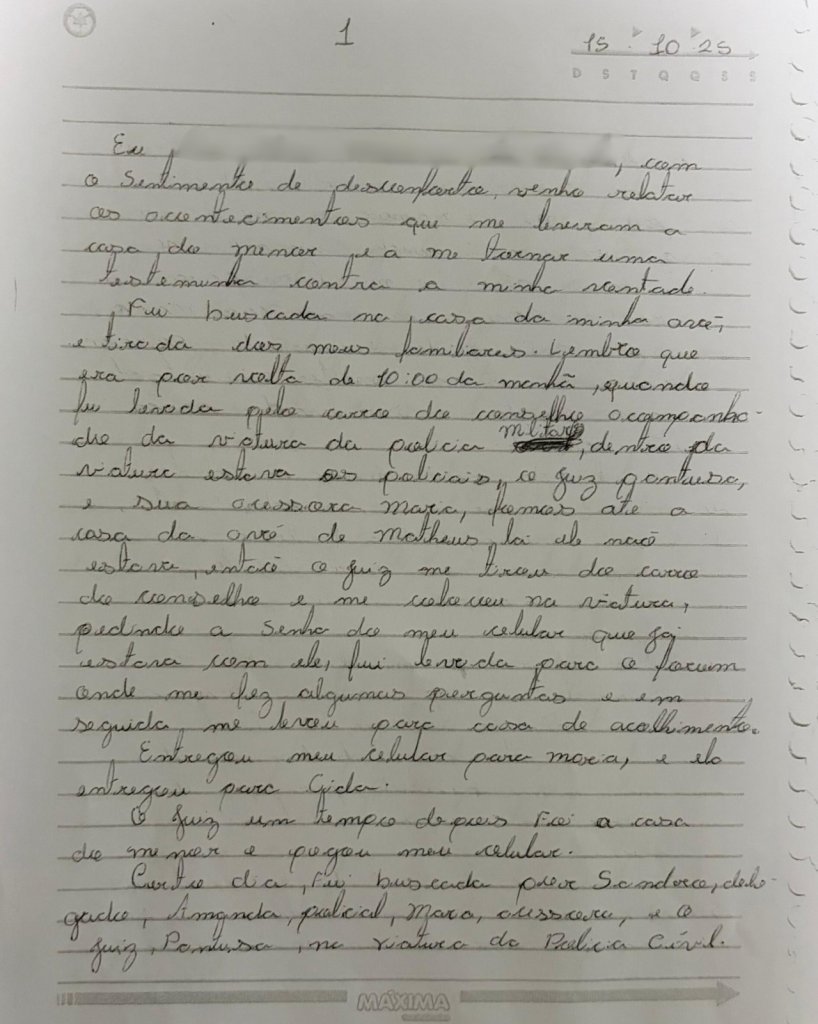 1
15 10 25
D S T Q Q S S
Eu , com
o Sentimento de desconforto, venho relatar
os acontecimentos que me levaram a
casa do menor, e a me tornar uma
testemunha contra a minha vontade.
Fui buscada na casa da minha avó,
e tirada dos meus familiares. Lembro que
era por volta de 10:00 da manhã, quando
fui levada pelo carro do conselho acompanha-
do da viatura da policia Militar, dentro da
viatura estava os policiais, o juiz pantusa,
e sua acessora Mara, fomos até a
casa da avó de Matheus, lá ele não
estava, então o juiz me tirou do carro
do conselho e me colocou na viatura,
pedindo a senha do meu celular que já
estava com ele, fui levada para o forum
onde me fez algumas perguntas e em
seguida, me levou para casa de acolhimento.
Entregou meu celular para mara, e ela
entregou para Gida.
O juiz um tempo depois Foi a casa
do menor e pegou meu celular.
Certo dia, Fui buscada por Sandero, dele-
gado, Amanda, policial, Mara, acessora, e o
juiz, Pantusa, na viatura da Policia Civil.
MÁXIMA